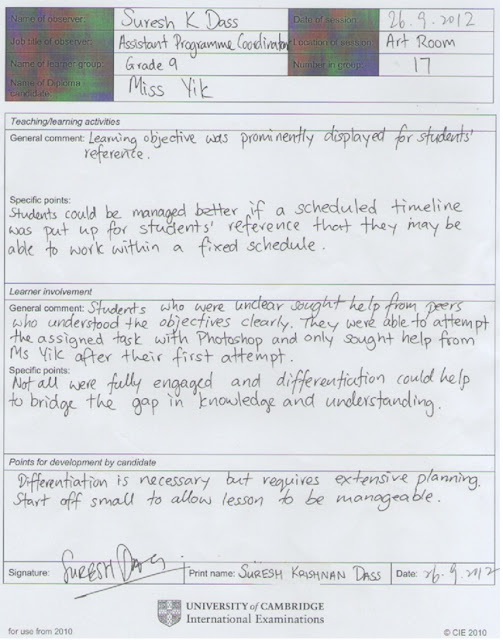 Name of observer: Suresh K Dass Date of session 26.9.2012
Job title of observer: Assistant Programme Coordinator Location of session Art Room
Name of learner group: Grade 9 Number in group: 17
Name of Diploma candidate: Miss Yik
Teaching/learning activities
General comment: Learning objective was prominently displayed for students'
reference.
Specific points:
Students could be managed better if a scheduled timeline
was put up for students' reference that they may be
able to work within a fixed schedule.
Learner involvement
General comment: Students who were unclear sought help from peers
who understood the objectives clearly. They were able to attempt
the assigned task with Photoshop and only sought help from
Ms Yik after their first attempt.
Specific points:
Not all were fully engaged and differentiation could help
to bridge the gap in knowledge and understanding.
Points for development by candidate
Differentiation is necessary but requires extensive planning.
Start off small to allow lesson to be manageable.
Signature: SURESH DASS Print name: SURESH KRISHNAN DASS Date: 26.9.2012
UNIVERSITY of CAMBRIDGE
International Examinations
for use from 2010 © CIE 2010